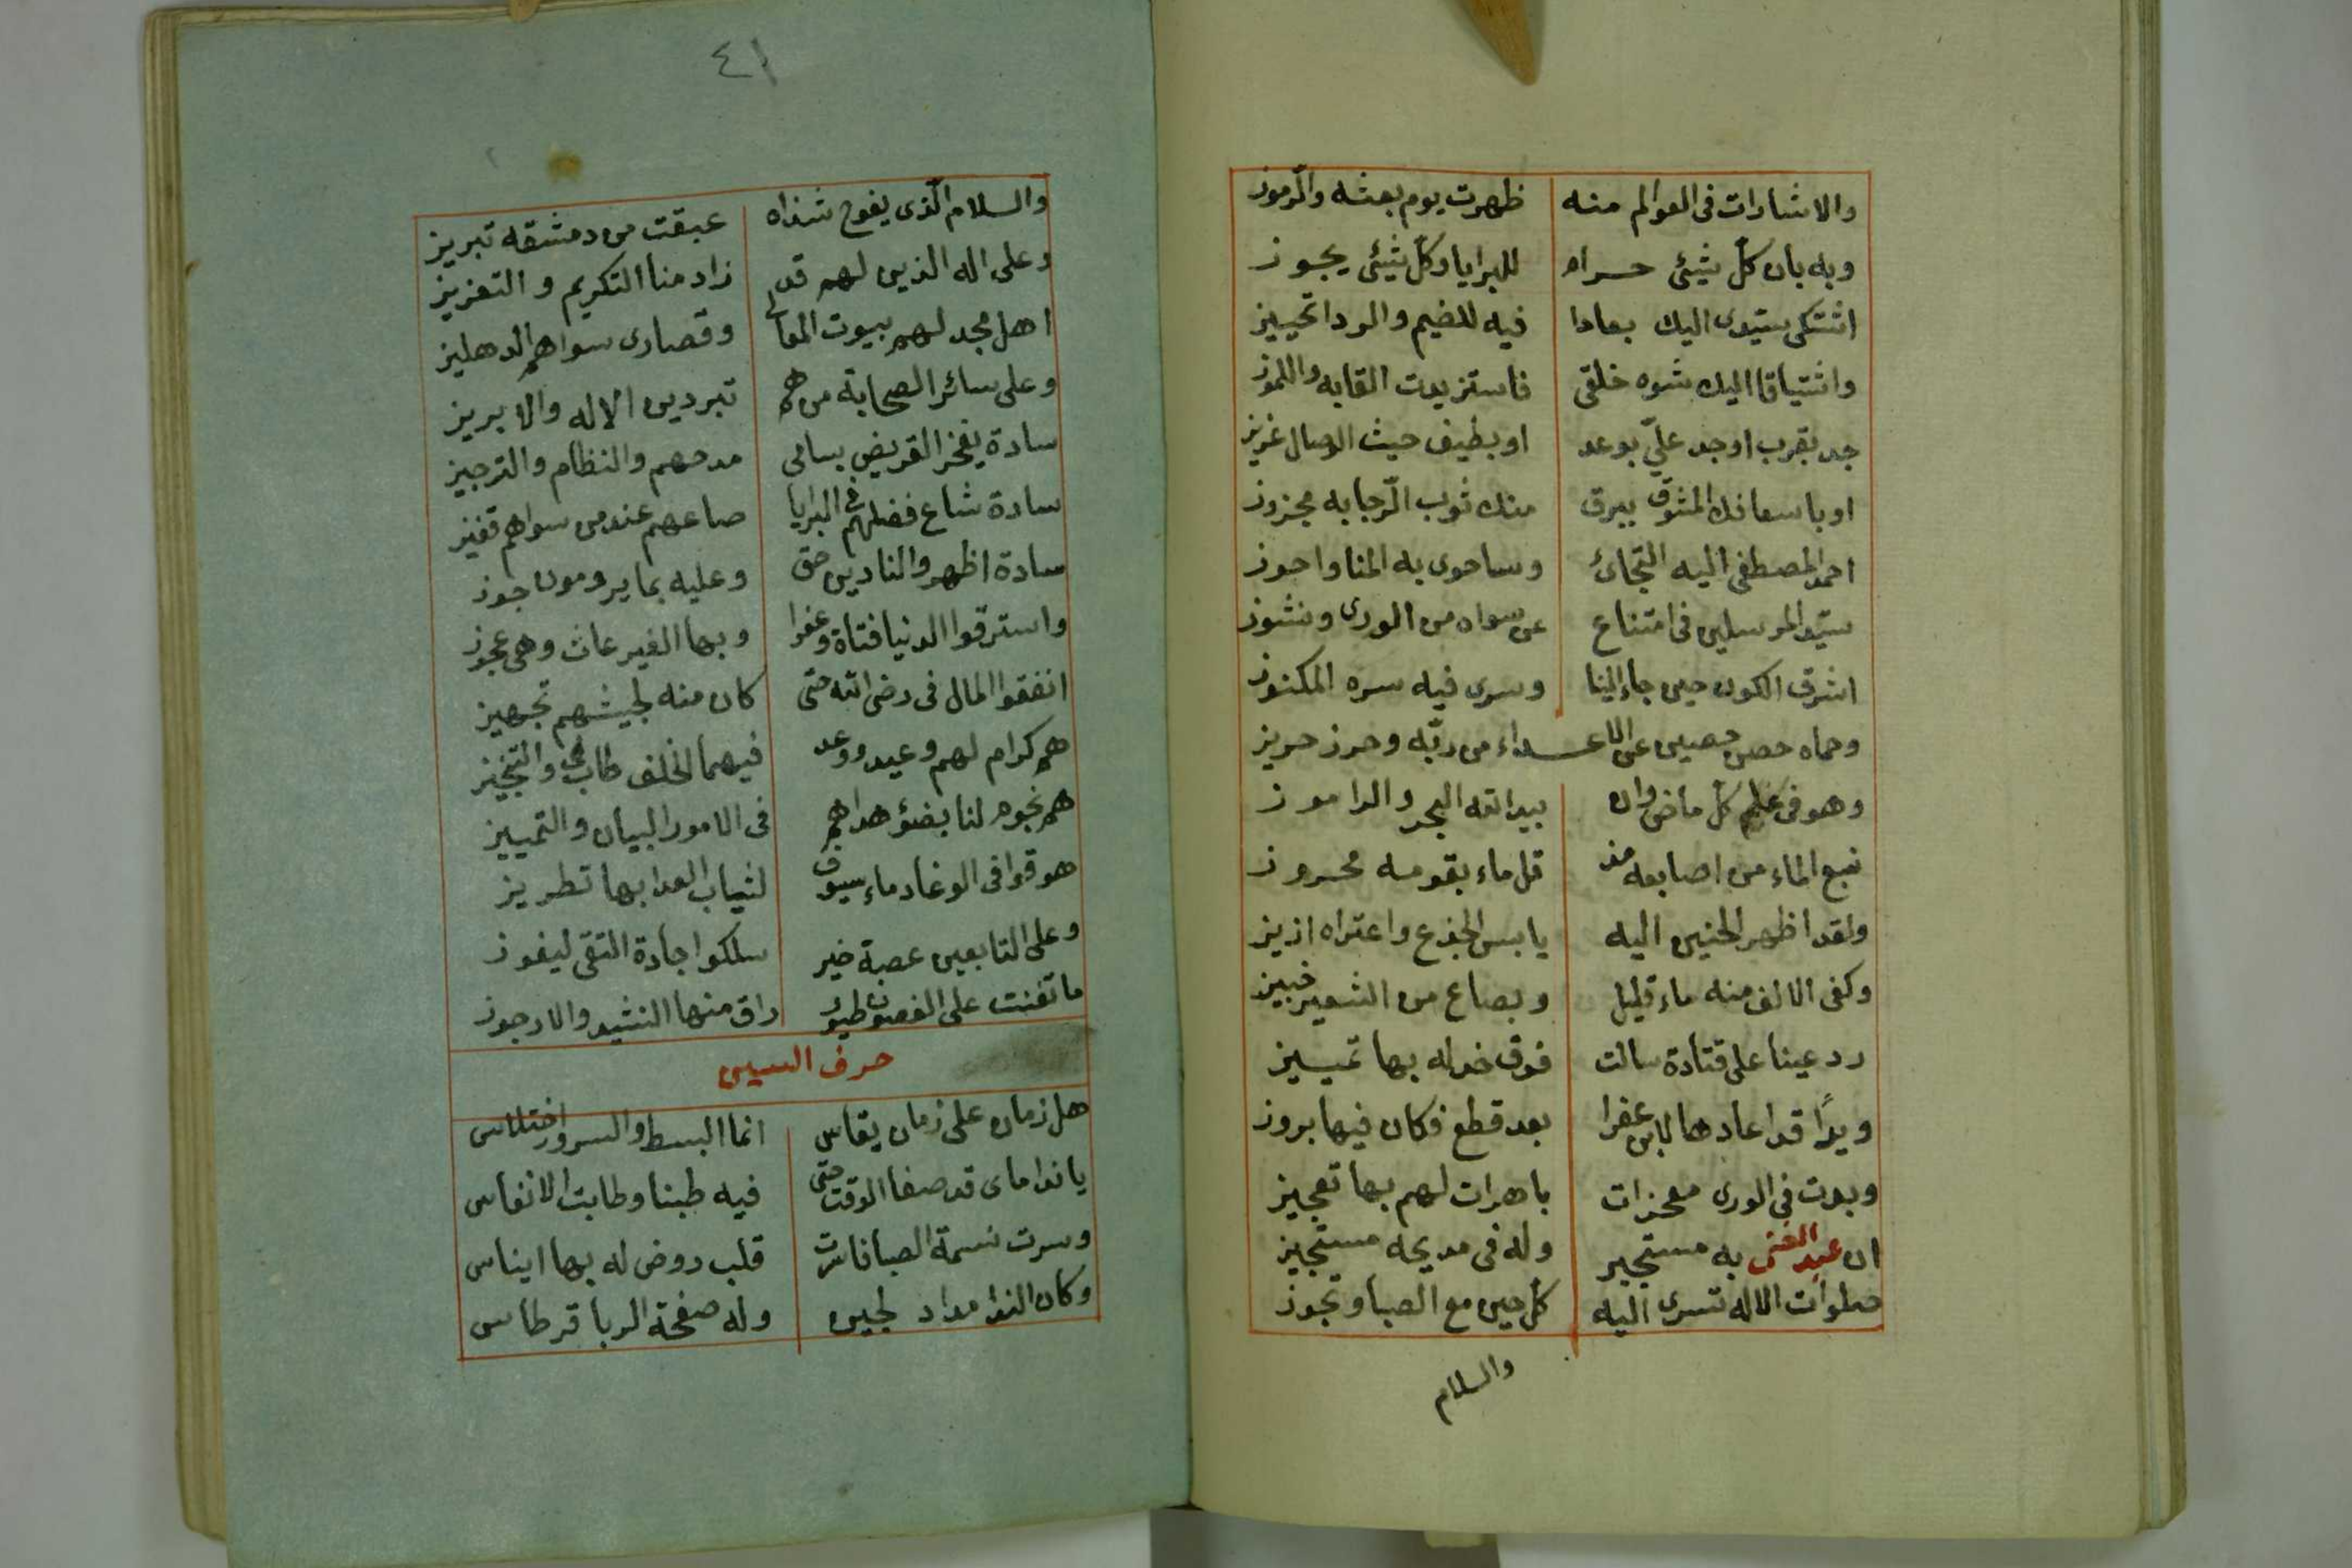 والاشارات فى العوالم منه ظهرت يوم بعثه والرموز
وبه بان كل شيئ حرام للبرايا وكل شيئ يجوز
اشتكى سيدى اليك بعادا فيه للضيم والردا تحييز
واشتياقا اليك شوه خلقى فاستزيدت القابه واللموز
جد بقرب اوجد علىّ بوعد او بطيف حيث الوصال عزيز
او باسعافك المشوّق ببرق منك ثوب الرّجا به مجزوز
احمد المصطفى اليه التجائ وساحوى به المنا واحوز
سيّد المرسلين فى امتناع عن سواه من الورى ونشوز
اشرق الكون حين جاء الينا وسرى فيه سره المكنوز
وحماه حصن حصين عن الاعداء من ربّه وحرز حريز
وهو فى علم كل ماض وان بيد الله البحر والراموز
نبع الماء من اصابعه مذ قل ماء بقومه محروز
ولقد اظهر الحنين اليه يابس الجذع واعتراه ازيز
وكفى الالف منه ماء قليل وبصاع من الشعير خبيز
رد عينا على قتادة سالت فوق خد له بها تمييز
ويدًا قد اعادها لابن عفرا بعد قطع فكان فيها بروز
وبدت فى الورى معجزات باهرات لهم بها تعجيز
ان عبد الغنى به مستجير وله فى مديحه مستجيز
صلوات الاله تسرى اليه كل حين مع الصبا وتجوز
والسلام
٤١
والسلام الّذى يفوح شذاه عبقت من دمشقه تبريز
وعلى اله الذين لهم قد زاد منا التكريم والتعزيز
اهل مجد لهم بيوت المعالى وقصارى سواهم الدهليز
وعلى سائر الصحابة من هم تبر دين الاله والابريز
سادة يفخر القريض بسامى مدحهم والنظام والترجيز
سادة شاع فضلهم فى البرايا صاعهم عند من سواهم قفيز
سادة اظهروا لنا دين حق وعليه بما يرومون جوز
واسترقوا الدنيا فتاة وعفرا وبها الغير عاث وهى عجوز
انفقوا المال فى رضى الله حتى كان منه لجيشهم تجهيز
هم كرام لهم وعيد ووعد فيهما الخلف طاب لى والتنجيز
هم نجوم لنا بضؤ هداهم فى الامور البيان والتمييز
هو قوا فى الوغا دماء سيوف لثياب العدا بها تطريز
وعلى التابعين عصبة خير سلكوا جادة التقى ليفوز
ما تغنت على الغصون طيور راق منها النشيد والارجوز
حرف السين
هل زمان على زمان يقاس انما البسط والسرور اختلاس
يا نداماى قد صفا الوقت حتى فيه طبنا وطابت الانفاس
وسرت نسمة الصبا فاسرت قلب روض له بها ايناس
وكان الندا مداد لجين وله صفحة الربا قرطاس